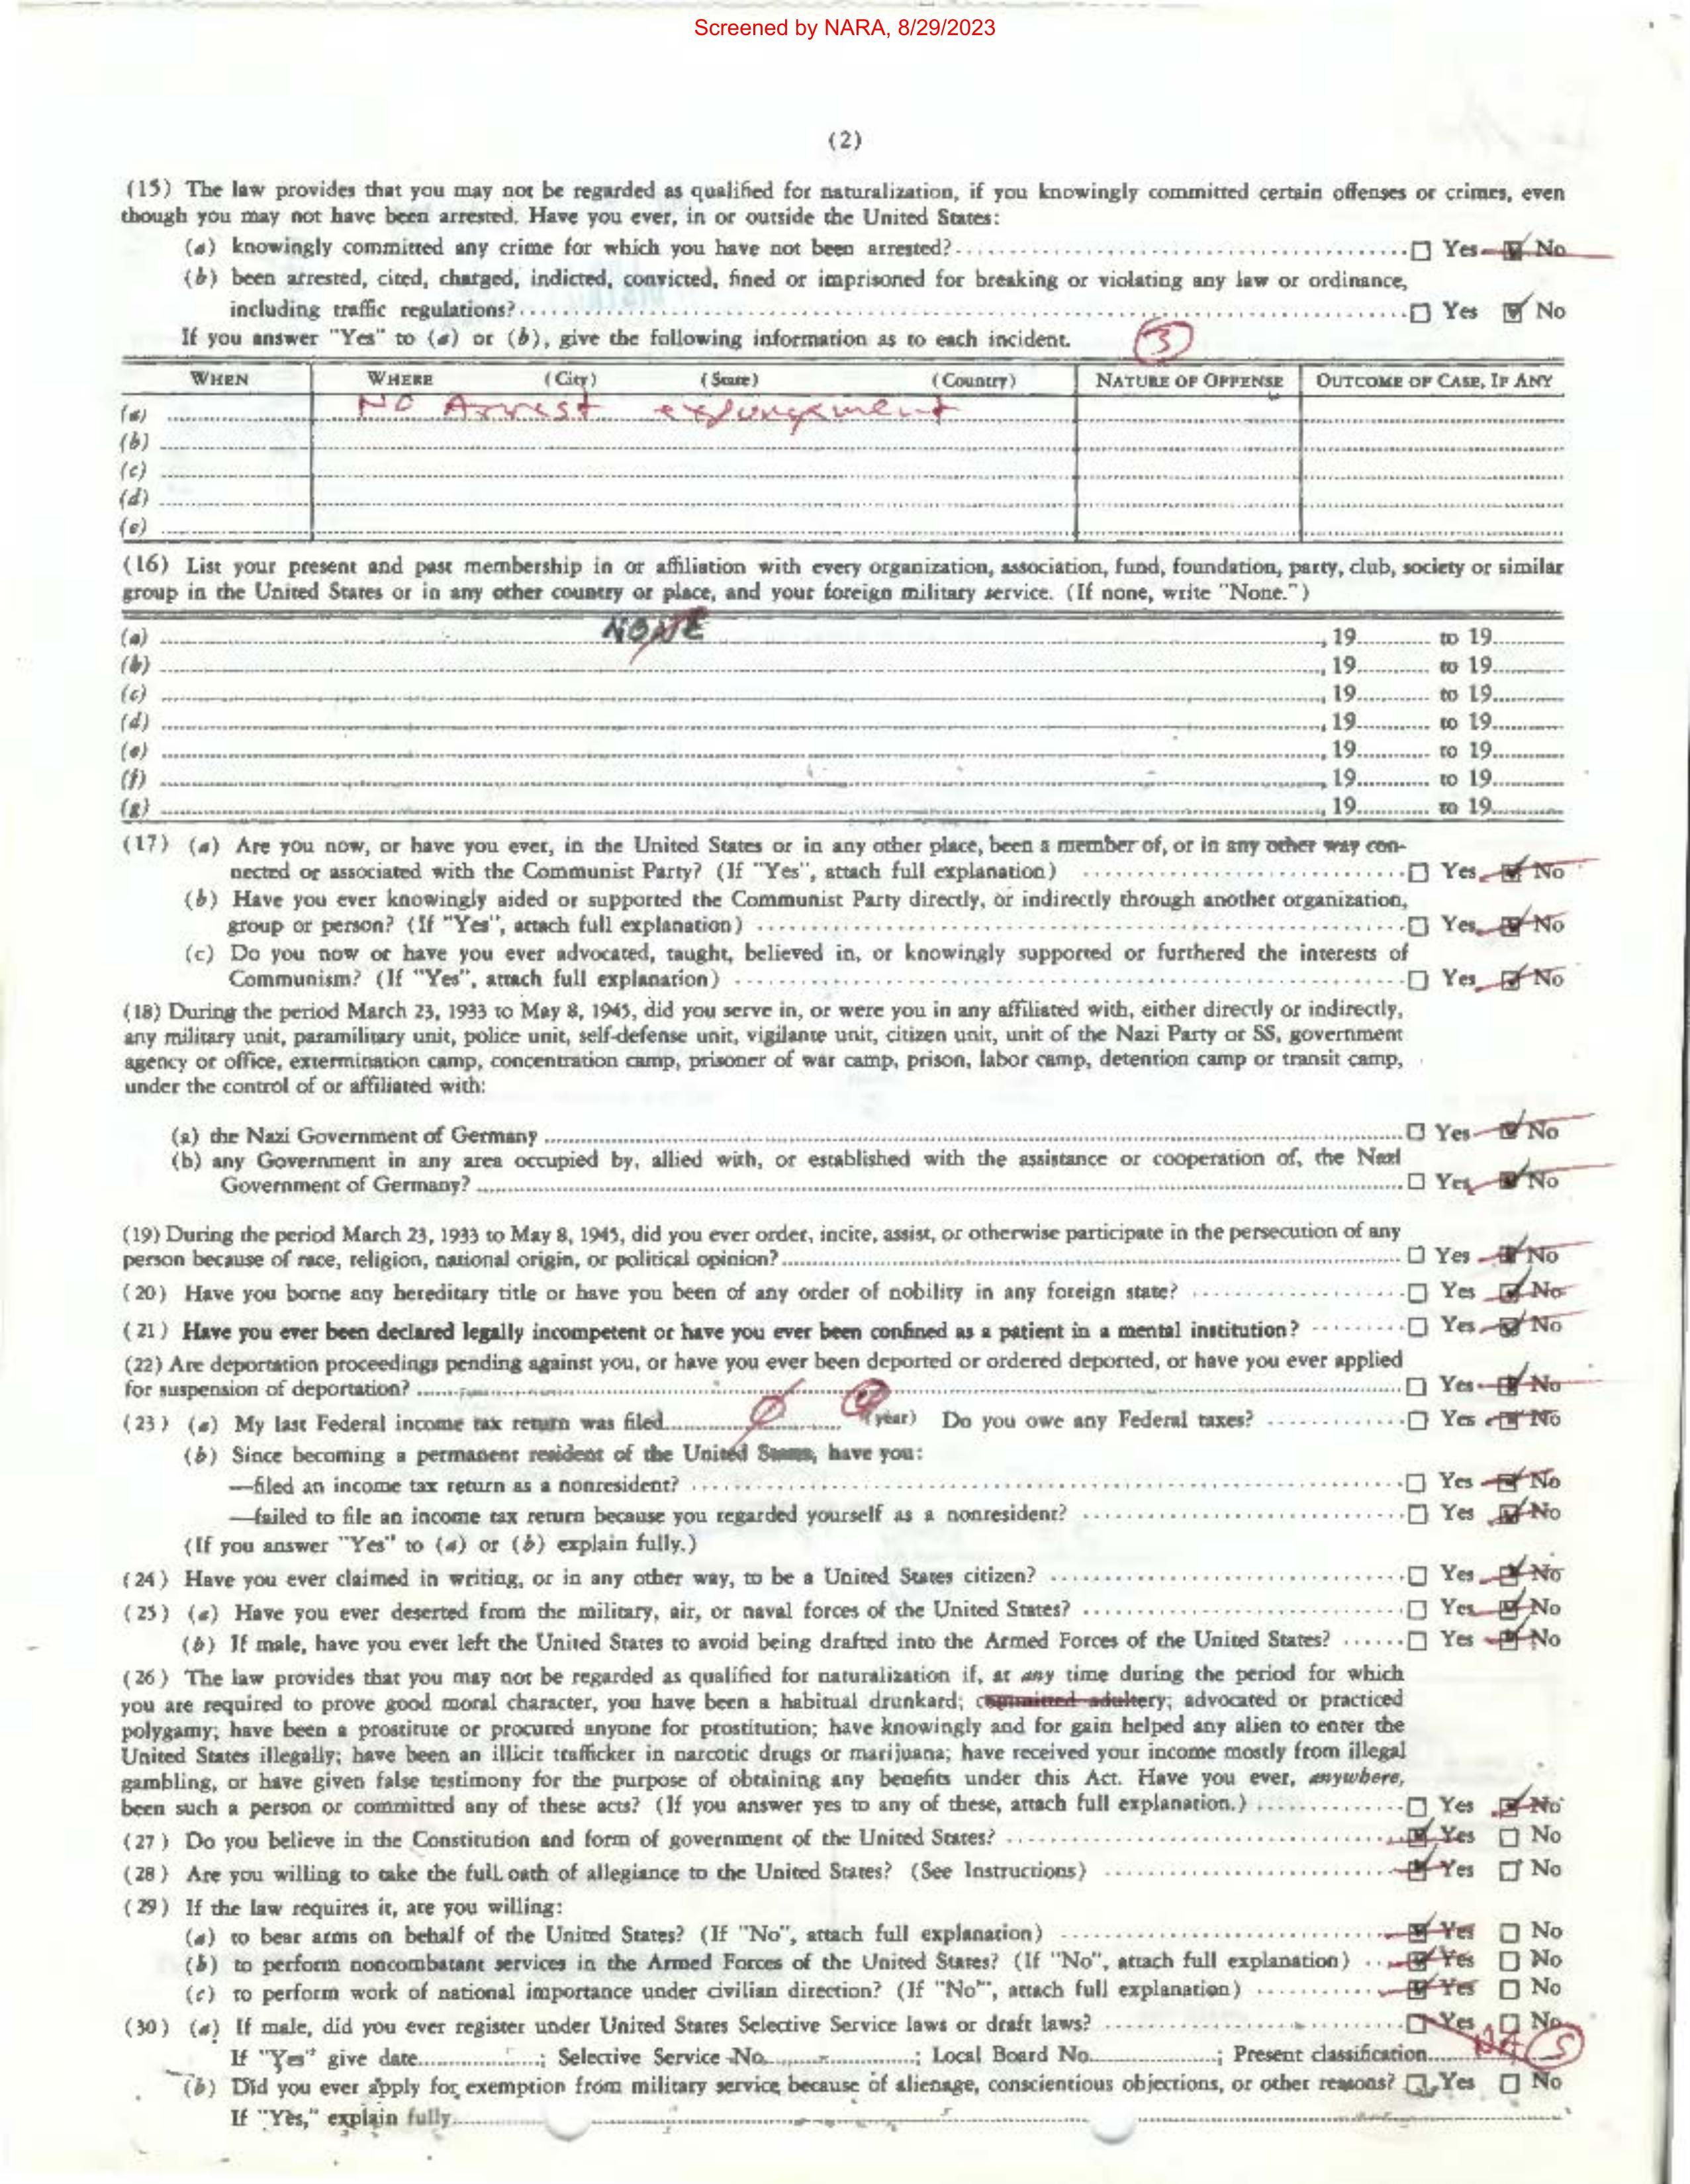 Screened by NARA, 8/29/2023
(2)
(15) The law provides that you may not be regarded as qualified for naturalization, if you knowingly committed certain offenses or crimes, even
though you may not have been arrested. Have you ever, in or outside the United States:
(a) knowingly committed any crime for which you have not been arrested? ☐ Yes ☑ No
(b) been arrested, cited, charged, indicted, convicted, fined or imprisoned for breaking or violating any law or ordinance,
including traffic regulations? ☐ Yes ☑ No
If you answer "Yes" to (a) or (b), give the following information as to each incident. 3
WHEN WHERE (City) (State) (Country) NATURE OF OFFENSE OUTCOME OF CASE, IF ANY
(a) No Arrest expungement
(b)
(c)
(d)
(e)
(16) List your present and past membership in or affiliation with every organization, association, fund, foundation, party, club, society or similar
group in the United States or in any other country or place, and your foreign military service. (If none, write "None.")
(a) NONE , 19 to 19
(b) , 19 to 19
(c) , 19 to 19
(d) , 19 to 19
(e) , 19 to 19
(f) , 19 to 19
(g) , 19 to 19
(17) (a) Are you now, or have you ever, in the United States or in any other place, been a member of, or in any other way con-
nected or associated with the Communist Party? (If "Yes", attach full explanation) ☐ Yes ☑ No
(b) Have you ever knowingly aided or supported the Communist Party directly, or indirectly through another organization,
group or person? (If "Yes", attach full explanation) ☐ Yes ☑ No
(c) Do you now or have you ever advocated, taught, believed in, or knowingly supported or furthered the interests of
Communism? (If "Yes", attach full explanation) ☐ Yes ☑ No
(18) During the period March 23, 1933 to May 8, 1945, did you serve in, or were you in any affiliated with, either directly or indirectly,
any military unit, paramilitary unit, police unit, self-defense unit, vigilante unit, citizen unit, unit of the Nazi Party or SS, government
agency or office, extermination camp, concentration camp, prisoner of war camp, prison, labor camp, detention camp or transit camp,
under the control of or affiliated with:
(a) the Nazi Government of Germany ☐ Yes ☑ No
(b) any Government in any area occupied by, allied with, or established with the assistance or cooperation of, the Nazi
Government of Germany? ☐ Yes ☑ No
(19) During the period March 23, 1933 to May 8, 1945, did you ever order, incite, assist, or otherwise participate in the persecution of any
person because of race, religion, national origin, or political opinion? ☐ Yes ☑ No
(20) Have you borne any hereditary title or have you been of any order of nobility in any foreign state? ☐ Yes ☑ No
(21) Have you ever been declared legally incompetent or have you ever been confined as a patient in a mental institution? ☐ Yes ☑ No
(22) Are deportation proceedings pending against you, or have you ever been deported or ordered deported, or have you ever applied
for suspension of deportation? ☐ Yes ☑ No
(23) (a) My last Federal income tax return was filed (year) Do you owe any Federal taxes? ☐ Yes ☑ No
(b) Since becoming a permanent resident of the United States, have you:
—filed an income tax return as a nonresident? ☐ Yes ☑ No
—failed to file an income tax return because you regarded yourself as a nonresident? ☐ Yes ☑ No
(If you answer "Yes" to (a) or (b) explain fully.)
(24) Have you ever claimed in writing, or in any other way, to be a United States citizen? ☐ Yes ☑ No
(25) (a) Have you ever deserted from the military, air, or naval forces of the United States? ☐ Yes ☑ No
(b) If male, have you ever left the United States to avoid being drafted into the Armed Forces of the United States? ☐ Yes ☑ No
(26) The law provides that you may not be regarded as qualified for naturalization if, at any time during the period for which
you are required to prove good moral character, you have been a habitual drunkard; committed adultery; advocated or practiced
polygamy; have been a prostitute or procured anyone for prostitution; have knowingly and for gain helped any alien to enter the
United States illegally; have been an illicit trafficker in narcotic drugs or marijuana; have received your income mostly from illegal
gambling, or have given false testimony for the purpose of obtaining any benefits under this Act. Have you ever, anywhere,
been such a person or committed any of these acts? (If you answer yes to any of these, attach full explanation.) ☐ Yes ☑ No
(27) Do you believe in the Constitution and form of government of the United States? ☑ Yes ☐ No
(28) Are you willing to take the full oath of allegiance to the United States? (See Instructions) ☑ Yes ☐ No
(29) If the law requires it, are you willing:
(a) to bear arms on behalf of the United States? (If "No", attach full explanation) ☑ Yes ☐ No
(b) to perform noncombatant services in the Armed Forces of the United States? (If "No", attach full explanation) ☑ Yes ☐ No
(c) to perform work of national importance under civilian direction? (If "No", attach full explanation) ☑ Yes ☐ No
(30) (a) If male, did you ever register under United States Selective Service laws or draft laws? ☐ Yes ☐ No
If "Yes" give date ; Selective Service No. ; Local Board No. ; Present classification NA 5
(b) Did you ever apply for exemption from military service because of alienage, conscientious objections, or other reasons? ☐ Yes ☐ No
If "Yes," explain fully